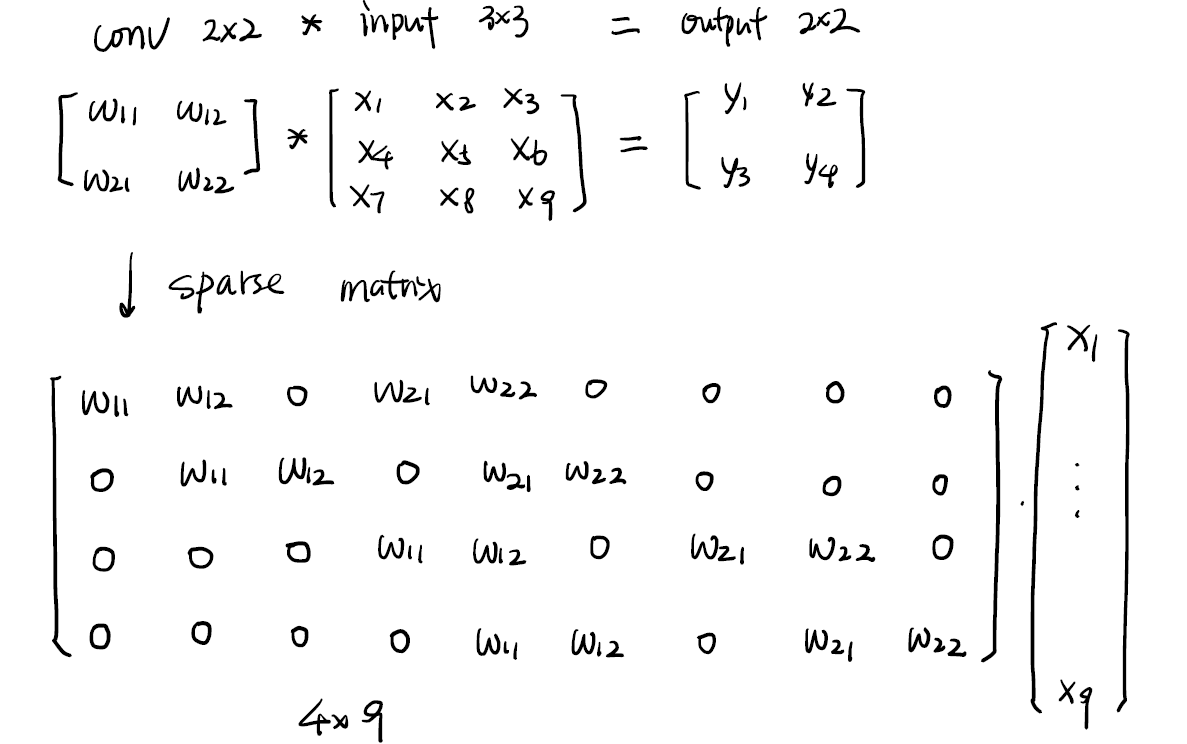 conv 2x2 * input 3x3 = output 2x2
[ w11 w12 ] * [ x1 x2 x3 ] = [ y1 y2 ]
x4 x5 x6
w21 w22 x7 x8 x9 y3 y4
↓ sparse matrix
x1
w11 w12 0 w21 w22 0 0 0 0
0 w11 w12 0 w21 w22 0 0 0 · ⋮
0 0 0 w11 w12 0 w21 w22 0
0 0 0 0 w11 w12 0 w21 w22
x9
4x9